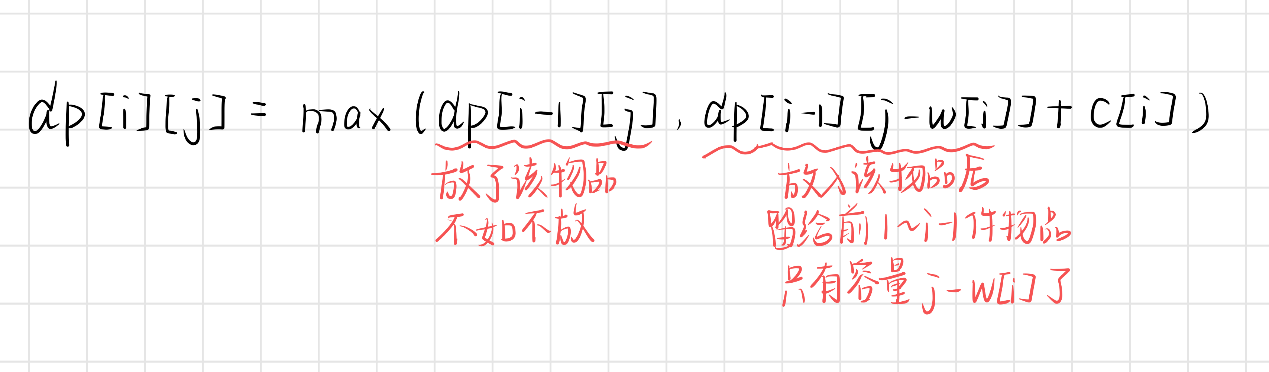 dp[i][j] = max (dp[i-1][j], dp[i-1][j-w[i]]+ c[i])
放了该物品
不如不放
放入该物品后
留给前1~i-1件物品
只有容量 j-w[i]了